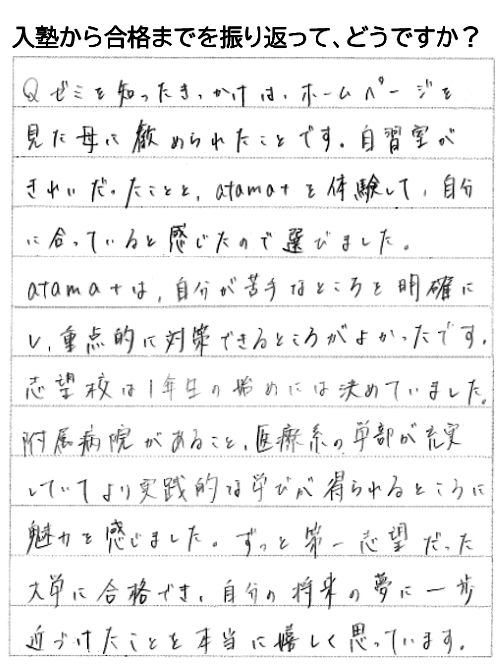 入塾から合格までを振り返って、どうですか？
Qゼミを知ったきっかけは、ホームページを
見た母に勧められたことです。自習室が
きれいだったことと、atama+を体験して、自分
に合っていると感じたので選びました。
atama+は、自分が苦手なところを明確に
し、重点的に対策できるところがよかったです。
志望校は1年生の始めには決めていました。
附属病院があること、医療系の学部が充実
していてより実践的な学びが得られるところに
魅力を感じました。ずっと第一志望だった
大学に合格でき、自分の将来の夢に一歩
近づけたことを本当に嬉しく思っています。